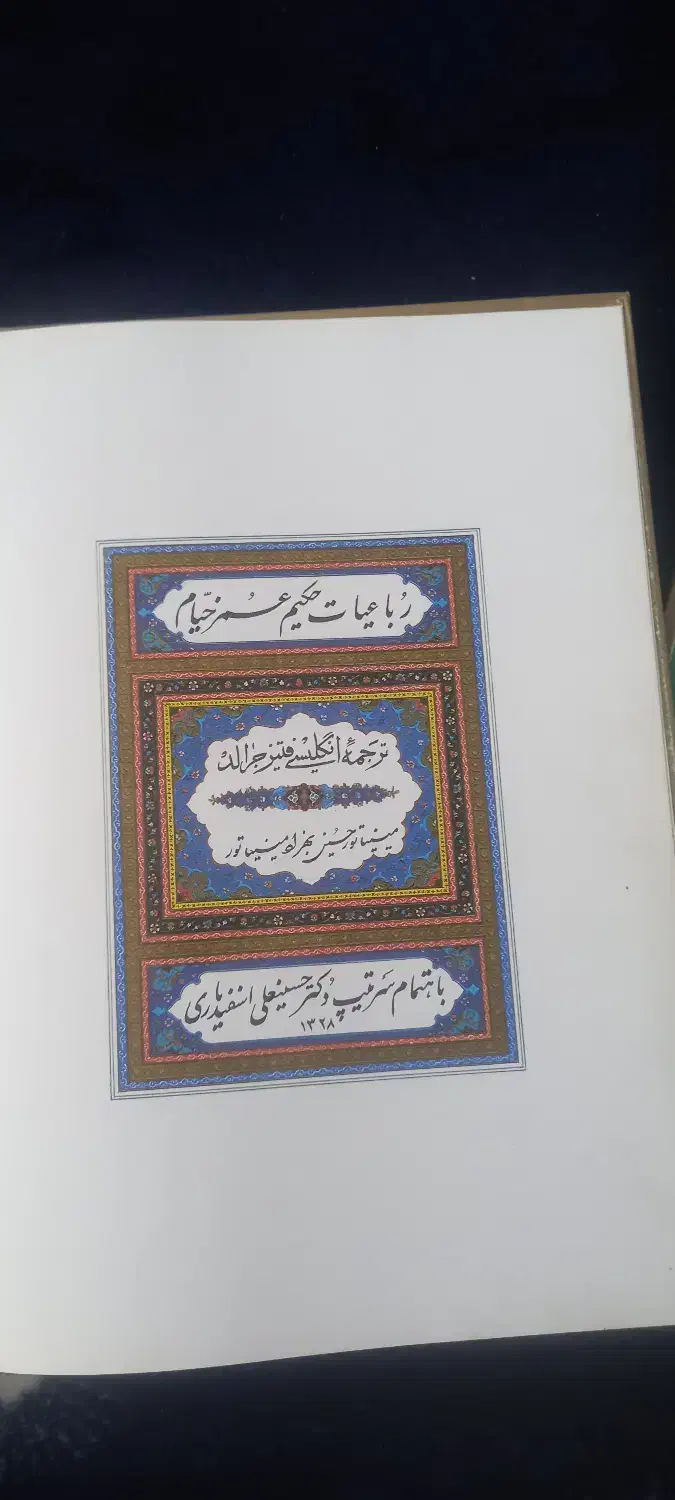 رباعیات حکیم عمر خیّام
ترجمهٔ انگلیسی فیتز جرالد
مینیاتور حسین بهزاد مینیاتور
باهتمام سرتیپ دکتر حسینعلی اسفندیاری
۱۳۲۸